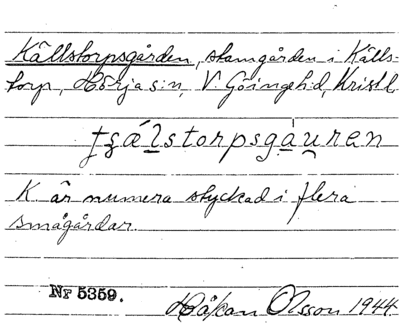 Källstorpsgården, stamgården i Källs-
torp, Hörja s:n, V. Göinge h:d, Krist.l.
tʂǽlstorpsgàu̯ren
K. är numera styckad i flera
smågårdar.
Nr 5359.
Håkan Olsson 1944.